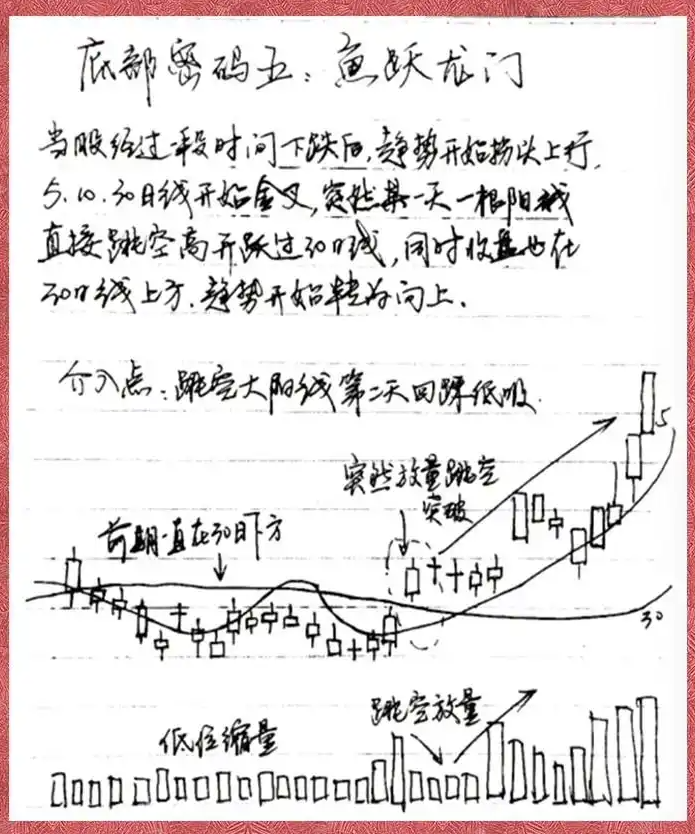 底部密码五：鱼跃龙门
当股经过一段时间下跌后，趋势开始拐头上行，
5.10.30日线开始金叉，突然某一天一根阳线
直接跳空高开跃过30日线，同时收盘也在
30日线上方，趋势开始转为向上。
介入点：跳空大阳线第二天回踩低吸.
突然放量跳空
突破
5
前期一直在30日下方
30
跳空放量
低位缩量